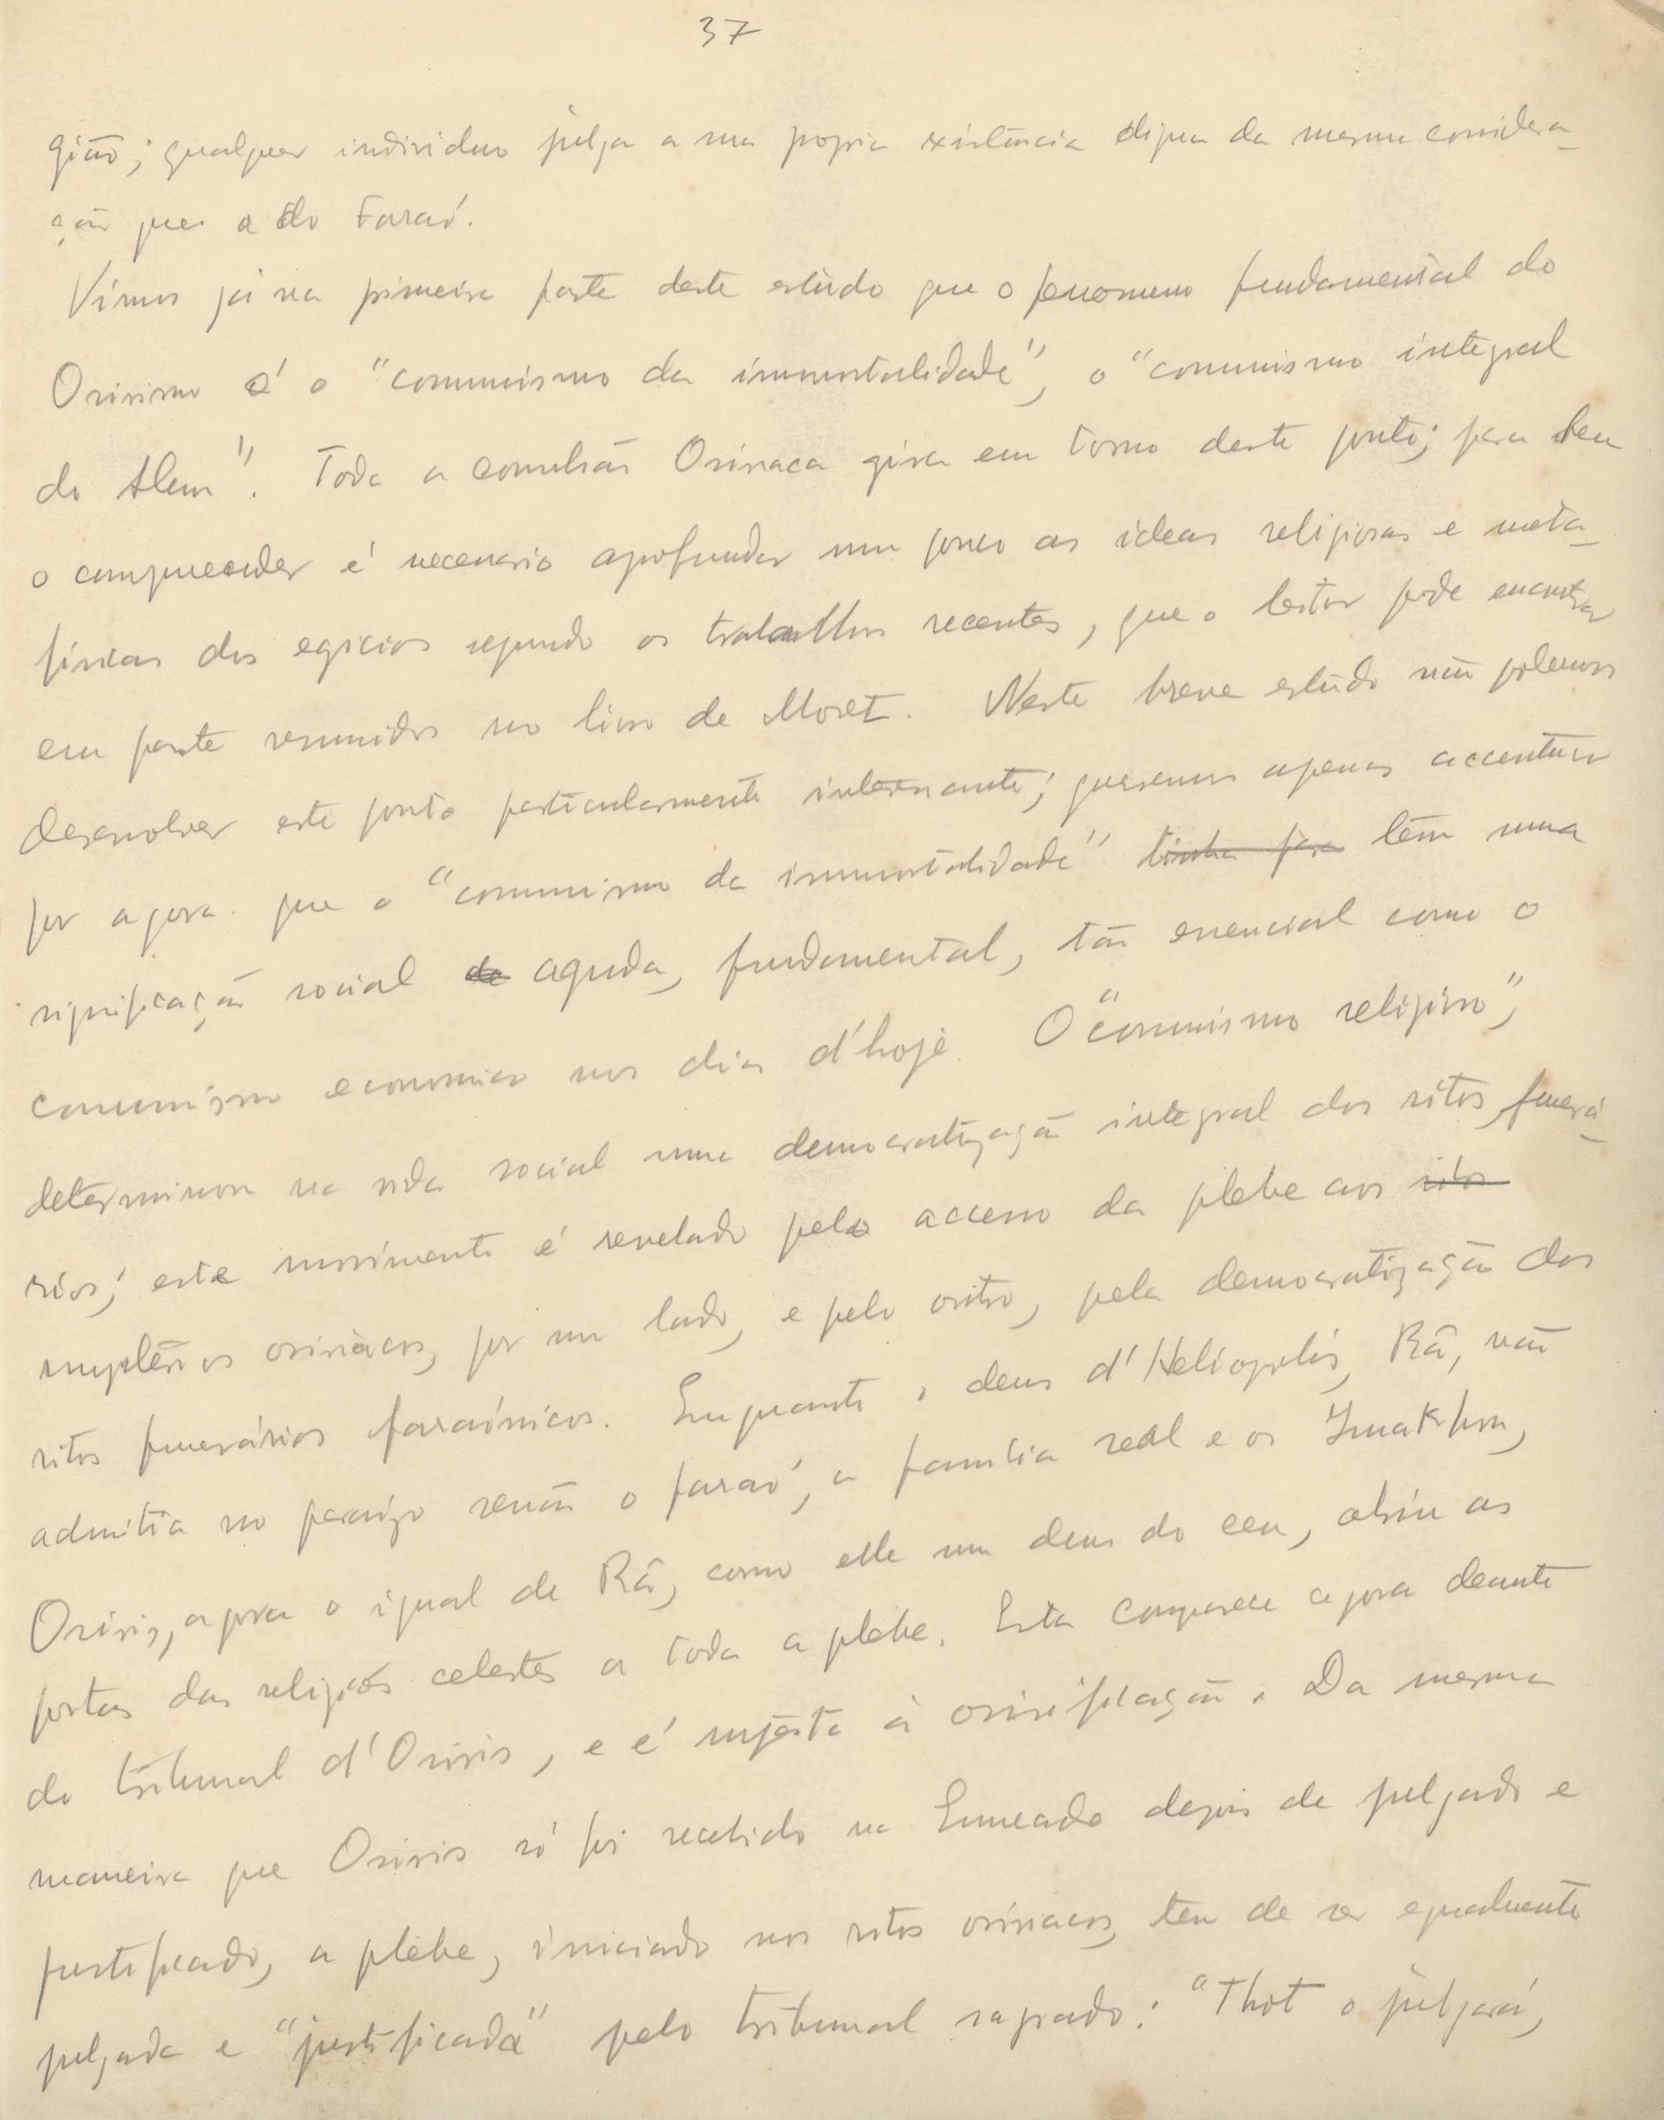 37
gião; qualquer individuo julga a sua propria existência digna da mesma considera-
ção que a do Faraó.
Vimos já na primeira parte deste estùdo que o fenomeno fundamental do
Osirismo é o "communismo da immortalidade", o "comunismo integral
do Alem". Toda a convulsão Osiriaca gira em torno deste ponto; para bem
o compreender é necessario aprofundar um pouco as ideas religiosas e meta-
físicas dos egicios segundo os trabalhos recentes, que o leitor pode encontrar
em parte reunidos no livro de Moret. Neste breve estùdo não podemos
desenvolver este ponto particularmente interessante; queremos apenas accentuar
por agora que o "communismo da immortalidade" tinha para têm uma
significação social de aguda, fundamental, tão essencial como o
comunismo economico nos dias d'hoje. O "comunismo religioso",
determinou na vida social uma democratização integral dos ritos funerá-
rios; este movimento é revelado pelo accesso da plebe aos ritos
mystérios osiriacos, por um lado, e pelo outro, pela democratização dos
ritos funerários faraónicos. Emquanto o deus d'Heliopolis, Râ, não
admitia no paraizo senão o faraó, a familia real e os Imakhou,
Osiris, agora o igual de Râ, como elle um deus do ceu, abriu as
portas das religiões celestes a toda a plebe. Esta comparece agora deante
do tribunal d'Osiris, e é sujeita à osirificação. Da mesma
maneira que Osiris só foi recebido na Enneada depois de julgado e
justificado, a plebe, iniciado nos ritos osiriacos, tem de ser egualmente
julgada e "justificada" pelo tribunal sagrado: "Thot o julgará,